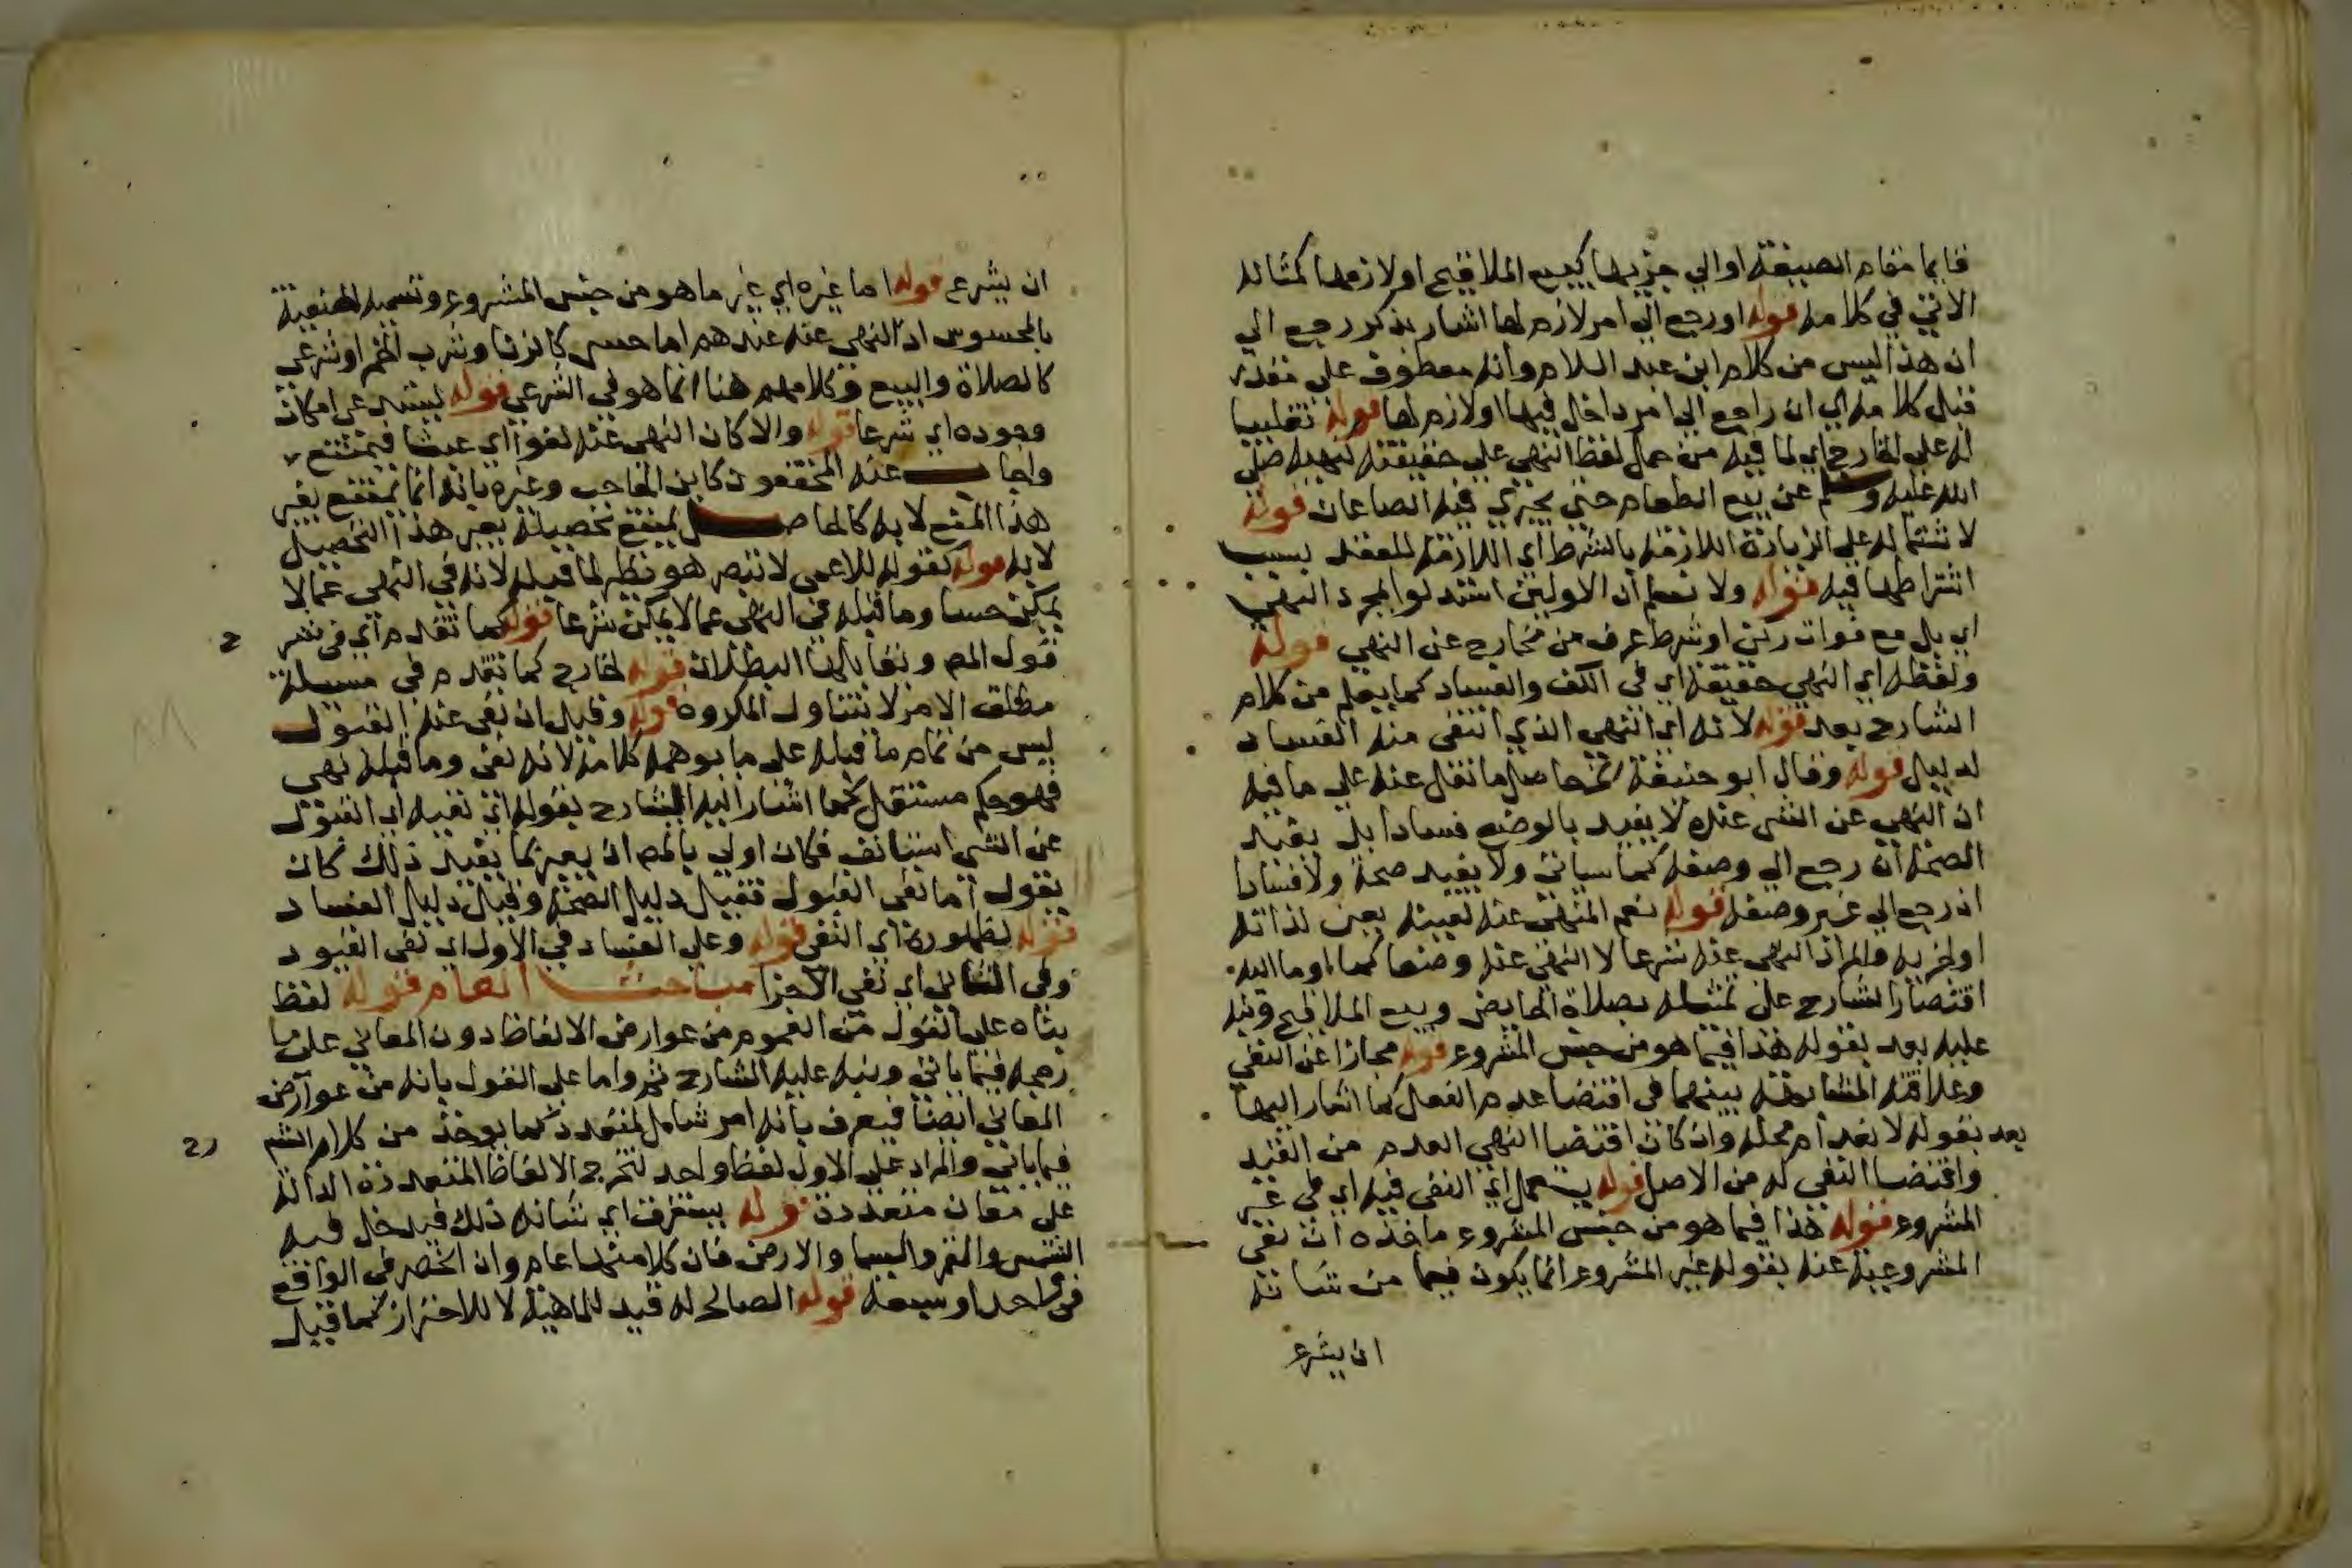 قايما مقام الصيغة او الي جزيها كبيع الملاقيح او لازمها كمثاله
الاتي في كلامه قوله او رجع الي امر لازم لها اشار بذكر رجع الي
ان هذا ليس من كلام ابن عبد السلام وانه معطوف علي مقدر
قبل كلامه اي ان راجع الي امر داخل فيها او لازم لها قوله تغليبا
له علي الخارج اي لما فيه من حمل لفظ النهي علي حقيقته لنهيه صلى
الله عليه وسلم عن بيع الطعام حتي يجري فيه الصاعان قوله
لاشتماله علي الزيادة اللازمة بالشرط اي اللازمة للعقد بسبب
اشتراطها فيه قوله ولا نسلم ان الاولين استدلوا بمجرد النهي
اي بل مع فوات ركن او شرط عرف من خارج عن النهي قوله
ولفظه اي النهي حقيقة اي في الكف والفساد كما يعلم من كلام
الشارح بعد قوله لانه اي النهي الذي انتفى منه الفساد
لدليل قوله وقال ابو حنيفة الخ حاصل ما نقل عنه علي ما فيه
ان النهي عن الشي عنده لا يفيد بالوضع فسادا بل يفيد
الصحة ان رجع الي وصفه كما سياتي ولا يفيد صحة ولا فسادا
ان رجع الي غير وصفه قوله نعم المنهي عنه لعينه يعني لذاته
او لجزيه والمراد النهي عنه شرعا لا النهي عنه وضعا كما اوما اليه
اقتصار الشارح علي تمثيله بصلاة الحايض وبيع الملاقيح ونبه
عليه بعد بقوله هذا فيما هو من جنس المشروع قوله مجازا عن النفي
وعلاقته المشابهة بينهما في اقتضا عدم الفعل كما اشار اليها
بعد بقوله لانعدام محله وان كان اقتضا النهي العدم من القيد
واقتضا النفي له من الاصل قوله يستعمل اي النفي فيه اي في غير
المشروع قوله هذا فيما هو من جنس المشروع ماخذه ان نفى
المشروعية عنه بقوله غير المشروع انما يكون فيما من شانه
ان يشرع
ان يشرع قوله اما غيره اي غير ما هو من جنس المشروع وتسميه الحنفية
بالمحسوس اذ النهي عنه عندهم اما حسي كالزنا وشرب الخمر او شرعي
كالصلاة والبيع وكلامهم هنا انما هو في الشرعي قوله ليستدعي امكان
وجوده اي شرعا قوله والا كان النهي عنه لغوا اي عبثا فيمتنع
واجاب عنه المحققون كابن الحاجب وغيره بانه انما يمتنع بغير
هذا المنع لا به كالحاصل يمتنع تحصيله بغير هذا التحصيل
لا به قوله كقوله للاعمى لا تبصر هو نظير لما قبله لانه في النهي عما لا
يمكن حسا وما قبله في النهي عما لا يمكن شرعا قوله كما تقدم اي في شر ح
قول المص ونقابلها البطلان قوله لخارج كما تقدم في مسيلة
مطلق الامر لا يتناول المكروه قوله وقيل ان نفي عنه القبول
ليس من تمام ما قبله علي ما يوهمه كلامه لانه نفي وما قبله نهي
فهو حكم مستقل كما اشار اليه الشارح بقوله اي نفيه اي القبول
عن الشي استئناف فكان اولي بالمص ان يعبر بما يفيد ذلك كان
يقول اما نفي القبول فقيل دليل الصحة وقيل دليل الفساد
قوله لظهوره اي النفي قوله وعلي الفساد في الاول اي نفي القبول
وفي الثاني اي نفي الاجزا مباحث العام قوله لفظ
بناه علي القول من العموم من عوارض الالفاظ دون المعاني علي ما
رجحه فيما ياتي ونبه عليه الشارح ثم واما علي القول بانه من عوارض
المعاني ايضا فيعرف بانه امر شامل لمتعدد كما يوخذ من كلام الش رح
فيما ياتي والمراد علي الاول لفظ واحد لتخرج الالفاظ المتعددة الدالة
علي معان متعددة قوله يستغرق اي شانه ذلك فيدخل فيه
الشمس والقمر والسما والارض فان كلا منها عام وان انحصر في الواقع
في واحد او سبعة قوله الصالح له قيد للماهية لا للاحتراز كما قيل